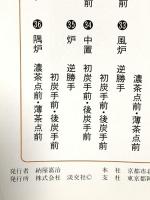 濃茶点前・薄茶点前
㉝ 風炉 逆勝手
初炭手前・後炭手前
㉞ 中置 初炭手前・後炭手前
㉟ 炉 逆勝手
初炭手前・後炭手前
㊱ 隅炉 濃茶点前・薄茶点前
発行者 納屋嘉治
発行所 株式会社 淡交社©
本社 京都市
支社 東京都